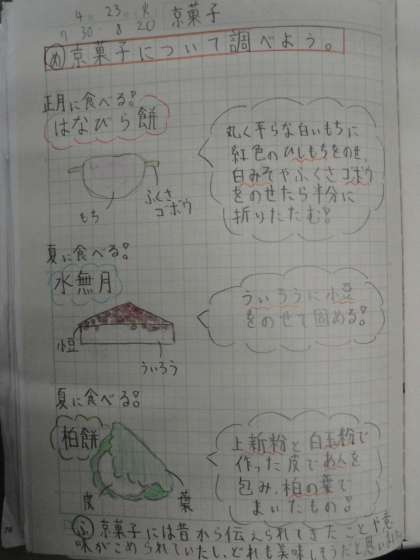 4. 23. 火
7 30. 8 20
京菓子
め 京菓子について調べよう。
正月に食べる。
はなびら餅
もち
ふくさ
ゴボウ
丸く平らな白いもちに
紅色のひしもちをのせ、
白みそやふくさゴボウ
をのせたら半分に
折りたたむ。
夏に食べる。
水無月
小豆
ういろう
ういろうに小豆
をのせて固める。
夏に食べる。
柏餅
皮
葉
上新粉と白玉粉で
作った皮であんを
包み、柏の葉で
まいたもの。
ふ 京菓子には昔から伝えられてきたことや意
味がこめられていたし、どれも美味しそうだと思いました